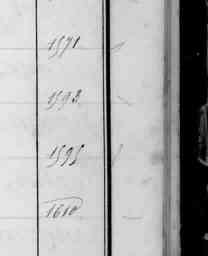 1571
1593
1595
1610